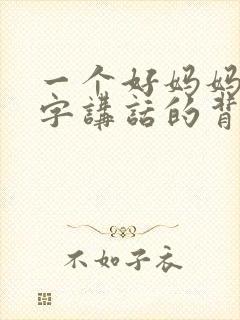 一个好妈妈
字講話的背
不如子衣